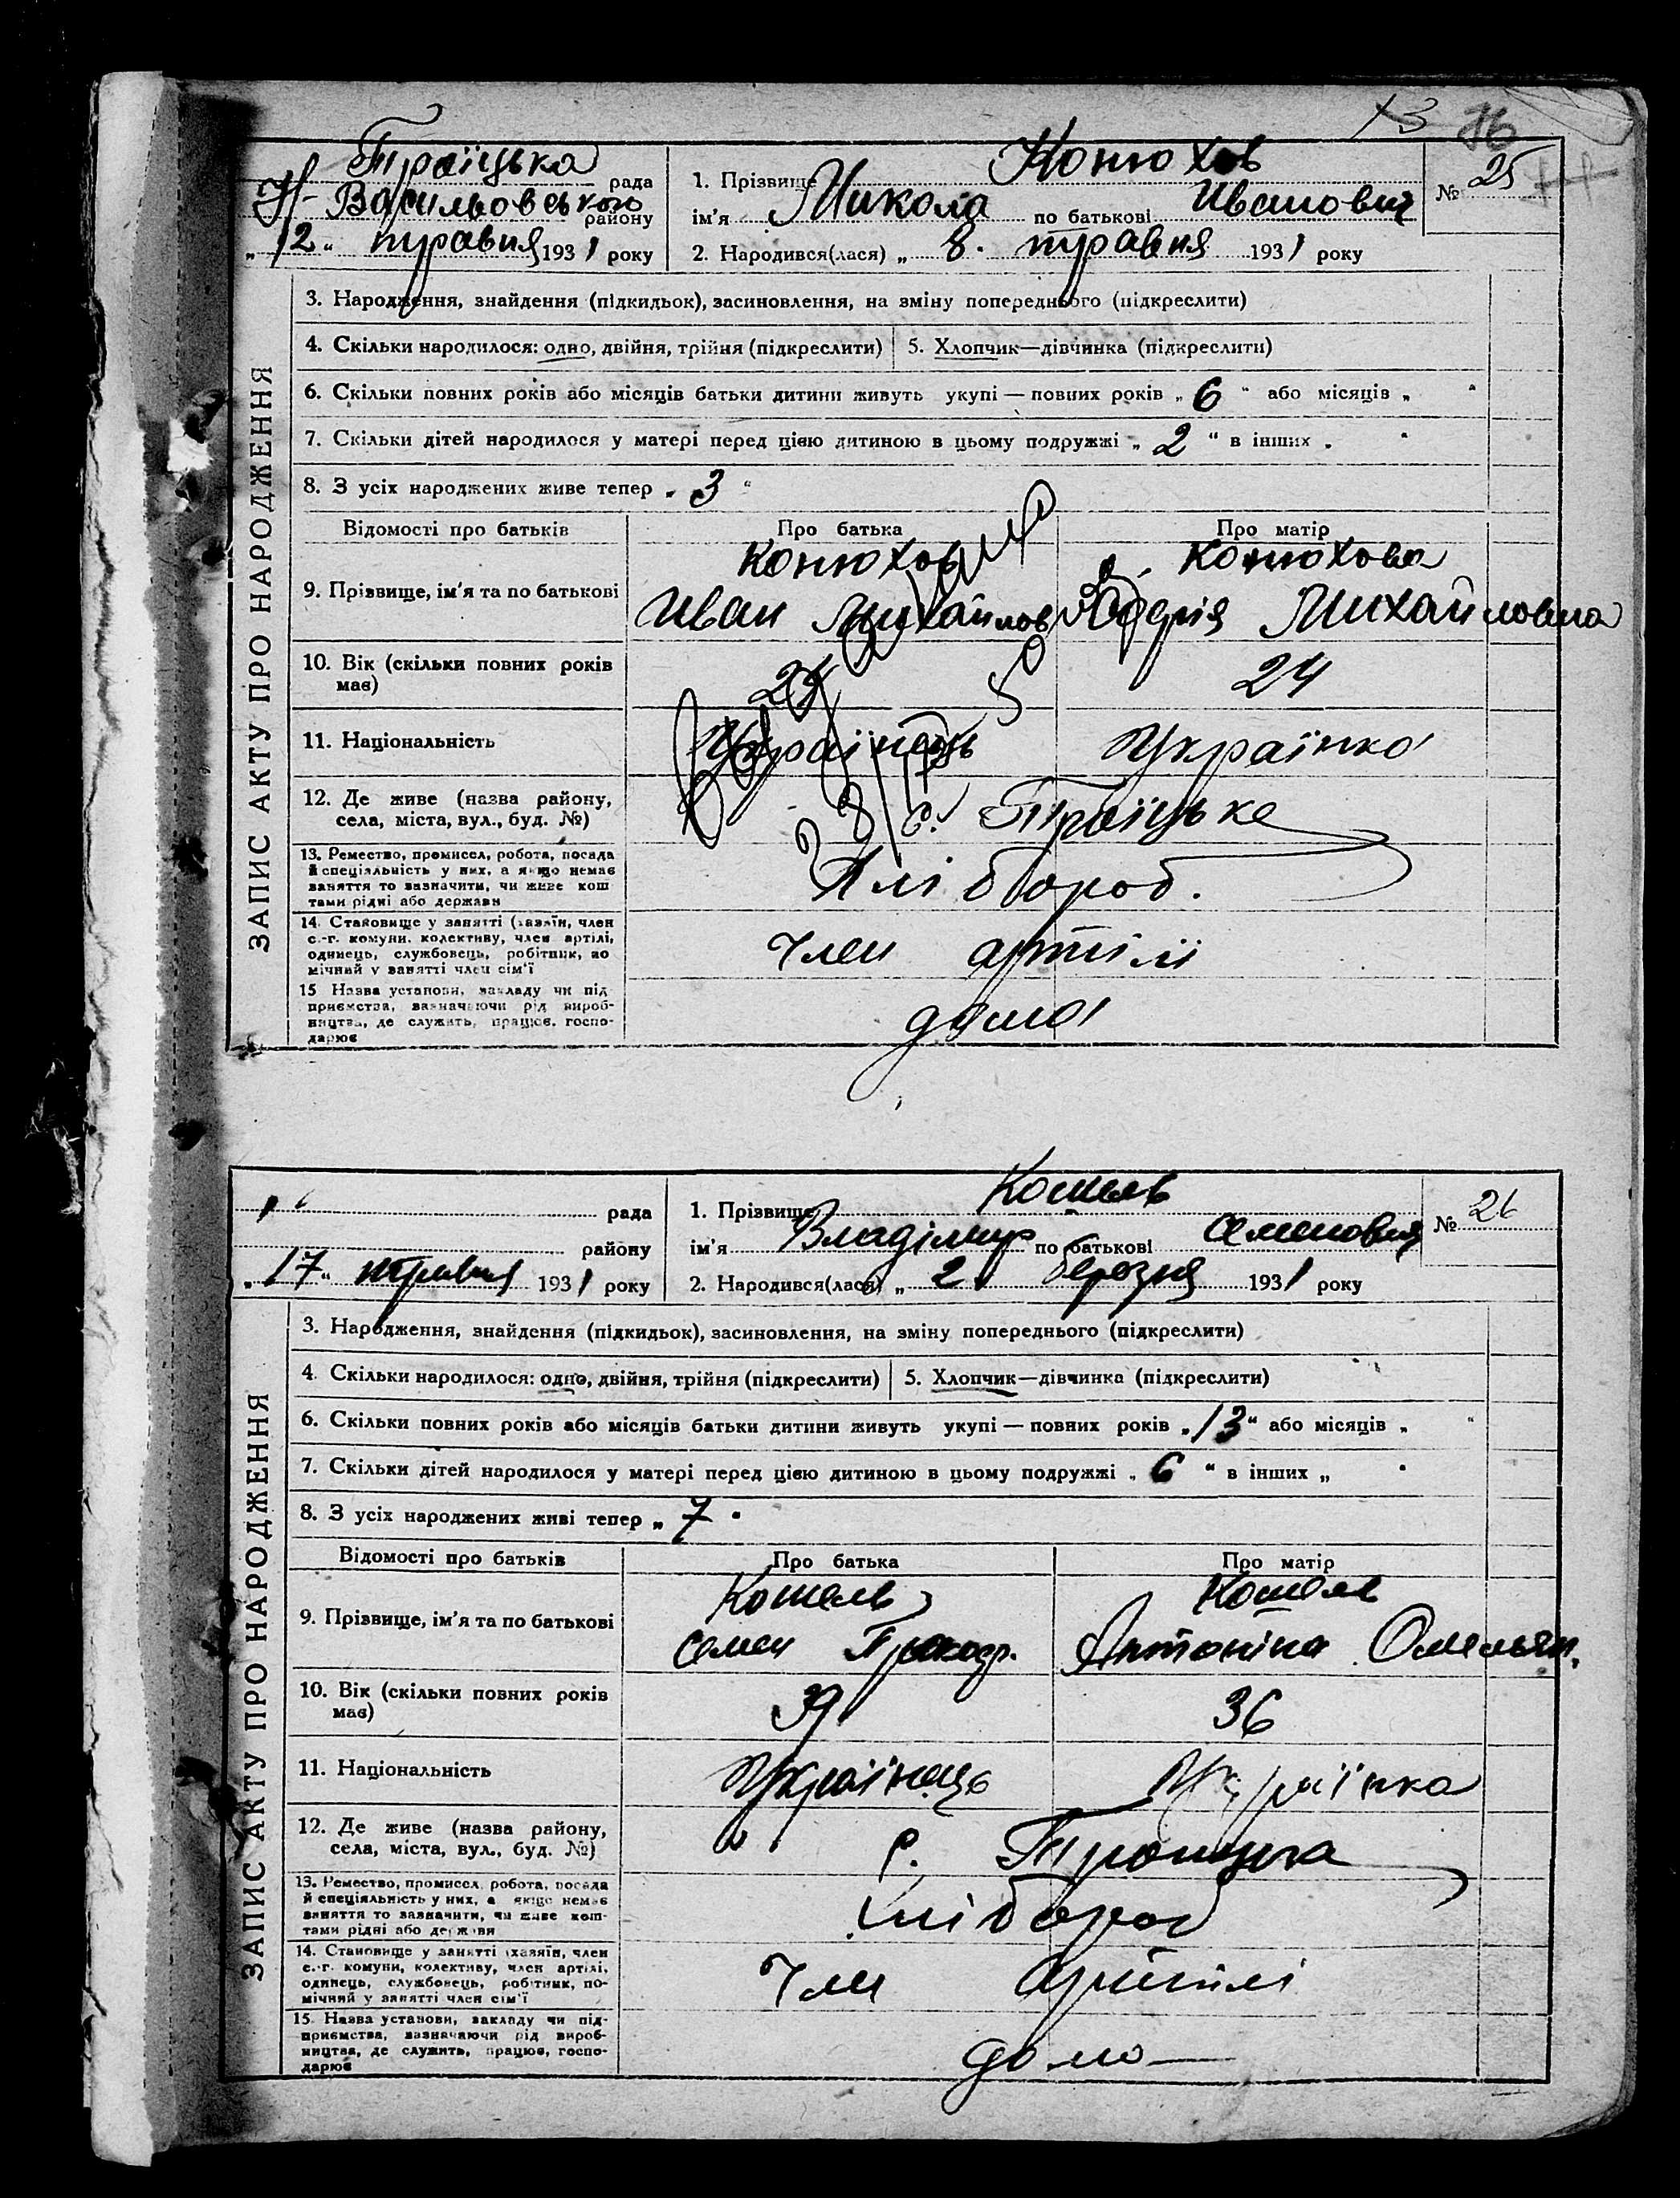 13 76
Траїцька рада
Н-Васильовського району
„12“ травня 1931 року
1. Прізвище Конюхов
ім'я Микола по батькові Иванович
2. Народився(лася) „ 8. травня 1931 року
№ 25
ЗАПИС АКТУ ПРО НАРОДЖЕННЯ
3. Народження, знайдення (підкидьок), засиновлення, на зміну попереднього (підкреслити)
4. Скільки народилося: одно, двійня, трійня (підкреслити) 5. Хлопчик—дівчинка (підкреслити)
6. Скільки повних років або місяців батьки дитини живуть укупі — повних років „ 6 “ або місяців „ “
7. Скільки дітей народилося у матері перед цією дитиною в цьому подружжі „ 2 “ в інших „ “
8. З усіх народжених живе тепер „ 3 “
Відомості про батьків Про батька Про матір
Конюхов Конюхова
9. Прізвище, ім'я та по батькові Иван Михайлов Михайловна
10. Вік (скільки повних років має) 24
11. Національність Українець Українка
12. Де живе (назва району, села, міста, вул., буд. №) с. Траїцьке
13. Ремество, промисел, робота, посада й спеціяльність у них, а якщо немає заняття то зазначити, чи живе коштами рідні або держави
Хлібороб.
14. Становище у занятті (хазяїн, член с.-г. комуни, колективу, член артілі, одинець, службовець, робітник, помічний у занятті член сім'ї
Член артілі
15 Назва установи, закладу чи підприємства, зазначаючи рід виробництва, де служить, працює, господарює
дома
рада
району
„17“ травня 1931 року
1. Прізвище Кошель
ім'я Владімир по батькові Семенович
2. Народився(лася) „ 2 березня 1931 року
№ 26
ЗАПИС АКТУ ПРО НАРОДЖЕННЯ
3. Народження, знайдення (підкидьок), засиновлення, на зміну попереднього (підкреслити)
4. Скільки народилося: одно, двійня, трійня (підкреслити) 5. Хлопчик—дівчинка (підкреслити)
6. Скільки повних років або місяців батьки дитини живуть укупі — повних років „13“ або місяців „ “
7. Скільки дітей народилося у матері перед цією дитиною в цьому подружжі „ 6 “ в інших „ “
8. З усіх народжених живі тепер „ 7 “
Відомості про батьків Про батька Про матір
Кошель Кошель
9. Прізвище, ім'я та по батькові Семен Антоніна Омельян.
10. Вік (скільки повних років має) 39 36
11. Національність Українець Українка
12. Де живе (назва району, села, міста, вул., буд. №) с. Троицка
13. Ремество, промисел, робота, посада й спеціяльність у них, а якщо немає заняття то зазначити, чи живе коштами рідні або держави
Хлібороб
14. Становище у занятті (хазяїн, член с.-г. комуни, колективу, член артілі, одинець, службовець, робітник, помічний у занятті член сім'ї
Член Артілі
15. Назва установи, закладу чи підприємства, зазначаючи рід виробництва, де служить, працює, господарює
дома